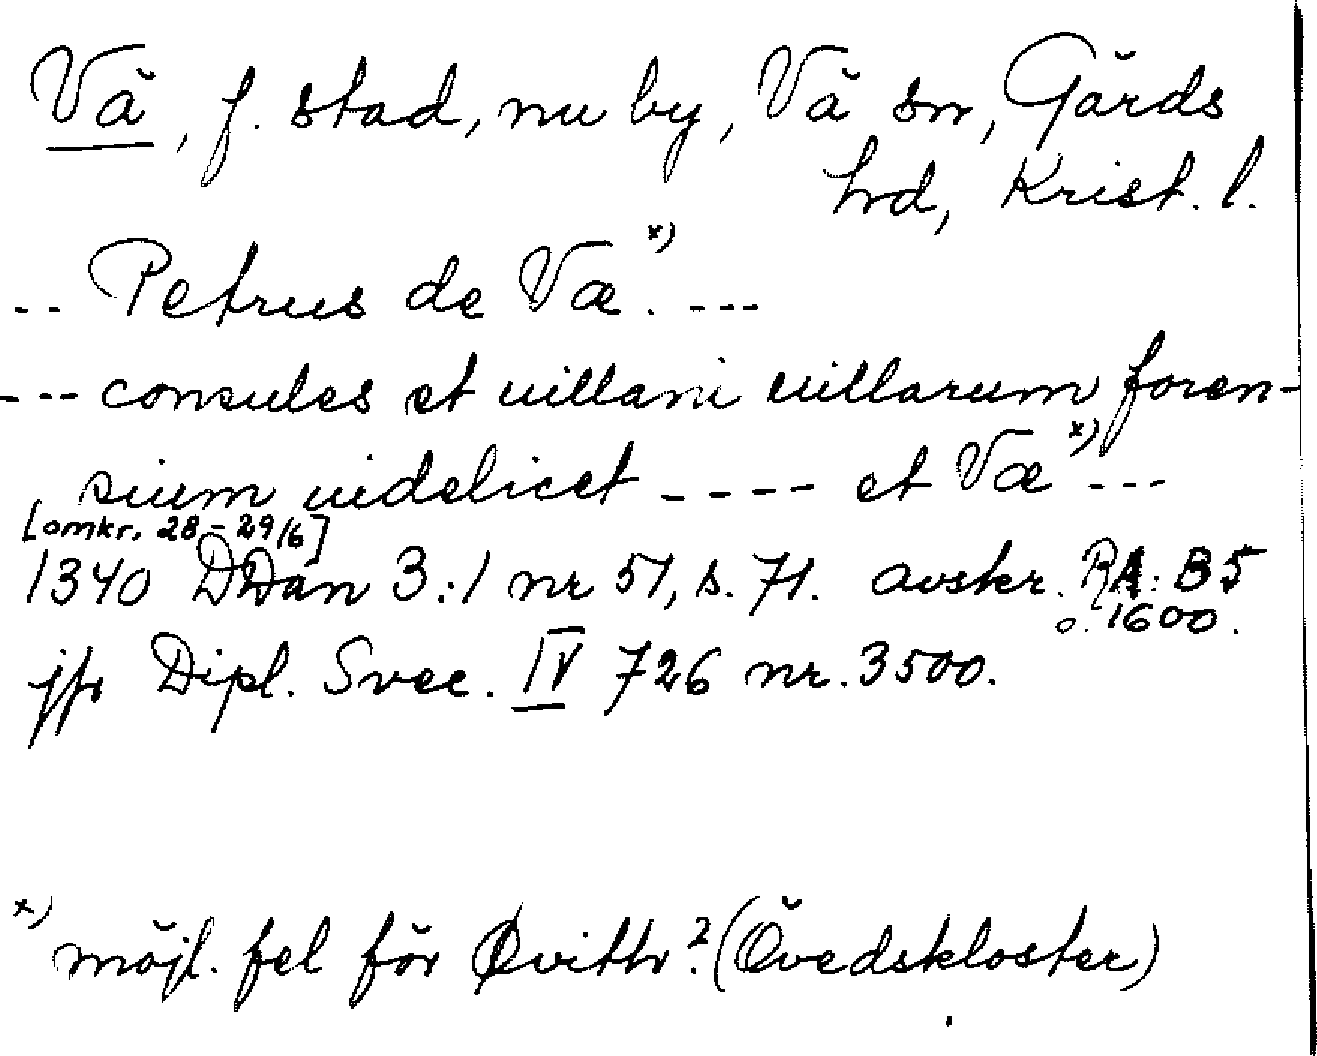 Vä, f. stad, nu by, Vä sn, Gärds
hd, Krist. l.
.. Petrus de Væ x). ---
--- consules et uillani uillarum foren-
sium uidelicet ---- et Væ x) ---
[omkr. 28-29/6]
1340 DDan 3:1 nr 51, s. 71. avskr. RA: B5
o. 1600.
jfr Dipl. Svec. IV 726 nr. 3500.
x) möjl. fel för Øvithr? (Övedskloster)